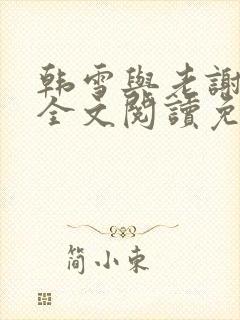 韩雪與老謝
全文閱讀免
简小東